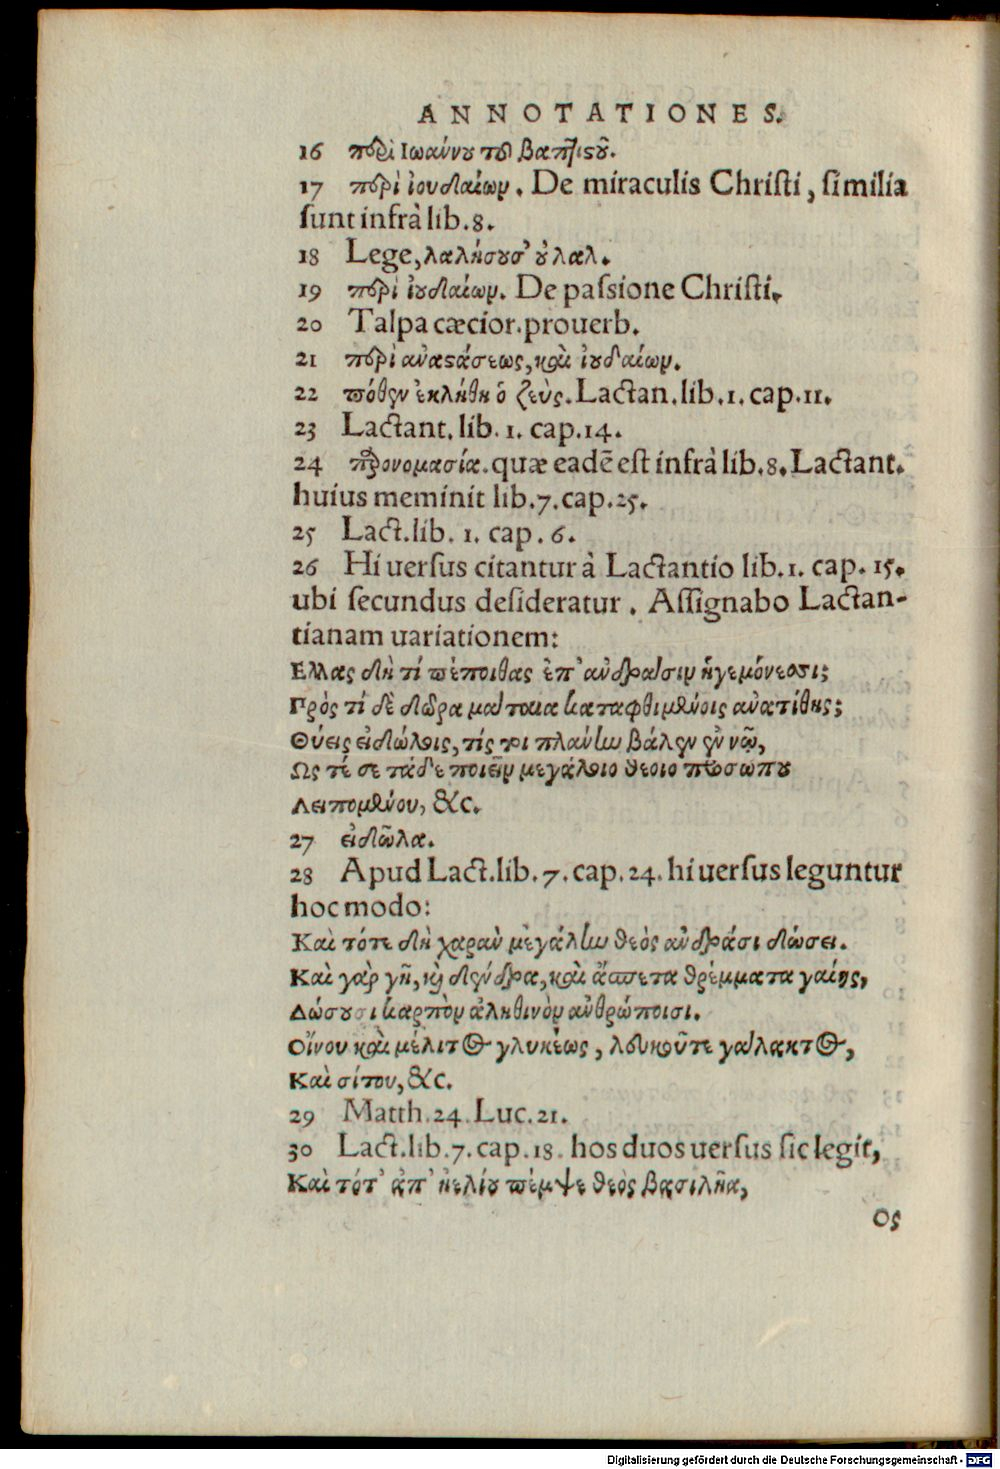 ANNOTATIONES.
16 περὶ Ιωαύνου τοῦ βαπτιστοῦ.
17 περὶ ἰουδαίωμ. De miraculis Christi, similia
sunt infrà lib.8.
18 Lege, λαλήσουσ' οὐ λαλ.
19 περὶ ἰουδαίωμ. De passione Christi.
20 Talpa cæcior. prouerb.
21 περὶ ἀναστάσεως, καὶ ἰουδαίωμ.
22 πόθεν ἐκλήθη ὁ ζεὺς. Lactan. lib.1. cap.11.
23 Lactant. lib. 1. cap.14.
24 προνομασία. quæ eadē est infrà lib.8. Lactant.
huius meminit lib.7. cap.25.
25 Lact. lib. 1. cap. 6.
26 Hi uersus citantur à Lactantio lib.1. cap. 15.
ubi secundus desideratur. Assignabo Lactan-
tianam uariationem:
Ελλας δὴ τί πέποιθας ἐπ' ἀνδράσιν ἡγεμόνεσσι;
Πρὸς τί δὲ δῶρα μάταια καταφθιμένοις ἀνατίθης;
Θύεις εἰδώλοις, τίς τοι πλάνην βάλεν ἐν νῷ,
Ως τέ σε τάδε ποιεῖν μεγάλοιο θεοιο πρόσωπου
Λειπομένου, &c.
27 εἰδῶλα.
28 Apud Lact. lib. 7. cap. 24. hi uersus leguntur
hoc modo:
Καὶ τότε δὴ χαρὰν μεγάλην θεὸς ἀνδράσι δώσει.
Καὶ γὰρ γῆ, καὶ δένδρα, καὶ ἄσπετα θρέμματα γαίης,
Δώσουσι καρπὸν ἀληθινὸν ἀνθρώποισι.
Οἴνου καὶ μέλιτος γλυκέως, λευκοῦτε γάλακτος,
Καὶ σίτου, &c.
29 Matth. 24. Luc. 21.
30 Lact. lib. 7. cap. 18. hos duos uersus sic legit,
Καὶ τότ' ἀπ' ἠελίου πέμψε θεὸς βασιλῆα,
Ος
Digitalisierung gefördert durch die Deutsche Forschungsgemeinschaft - DFG